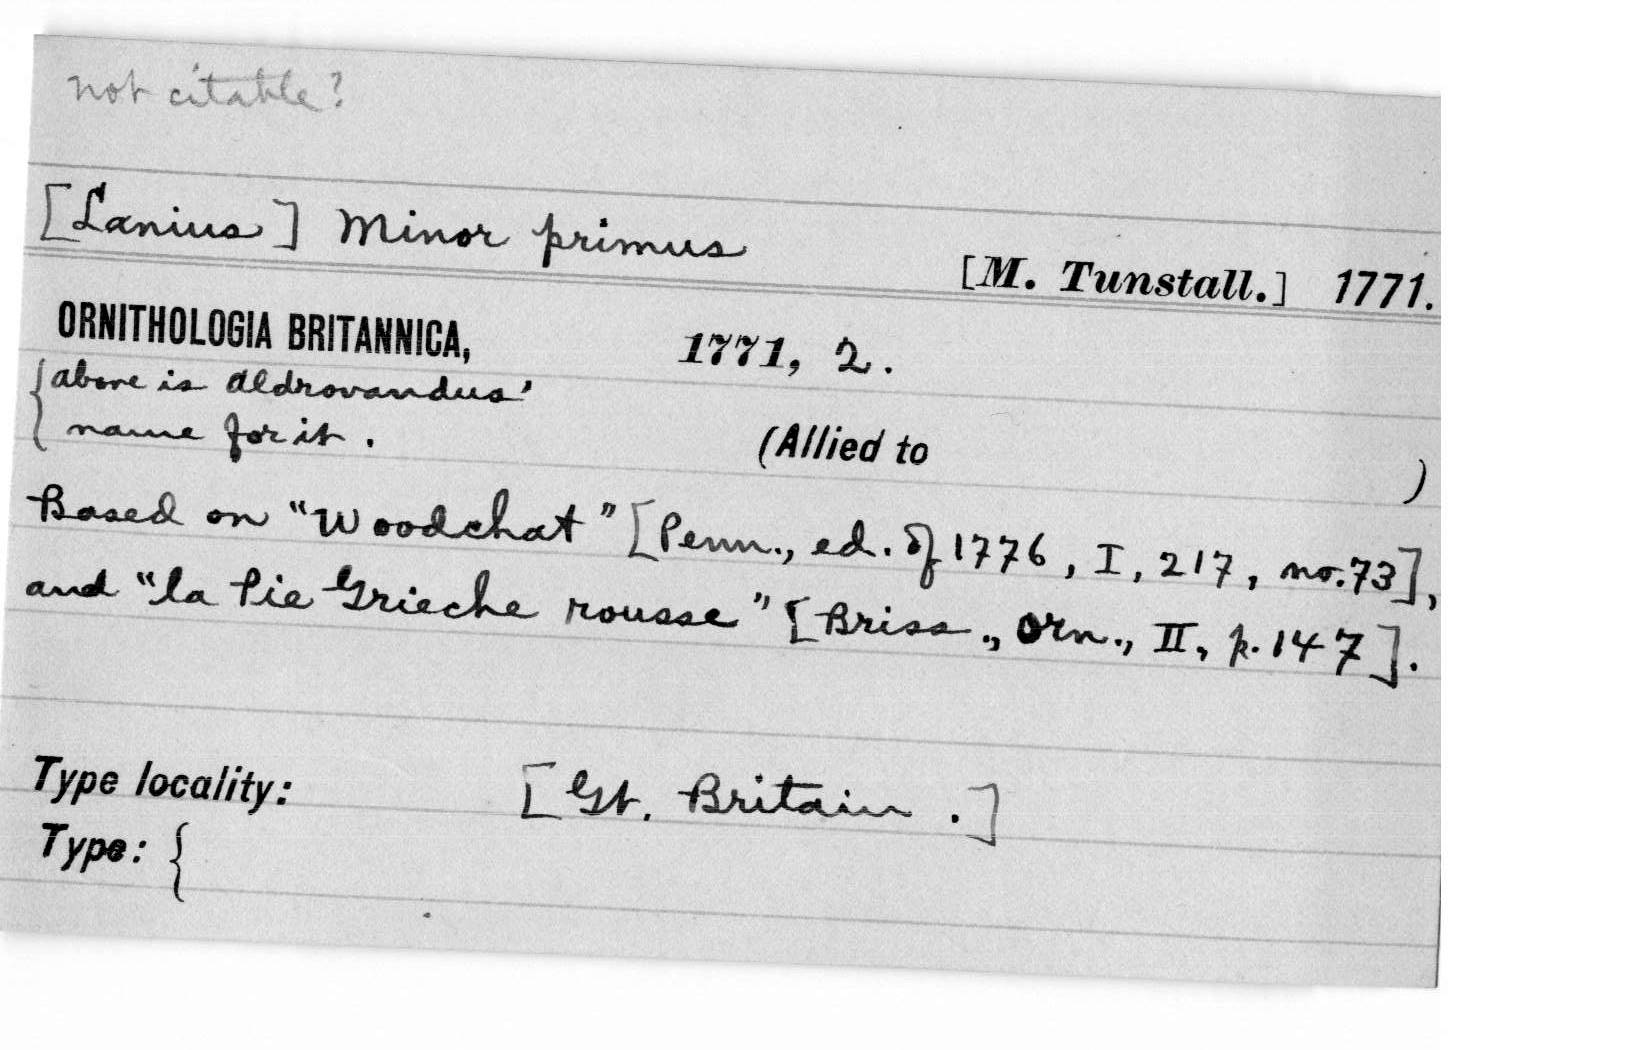 not citable?
[Lanius] Minor primus
[M. Tunstall.] 1771.
ORNITHOLOGIA BRITANNICA, 1771, 2.
{above is Aldrovandus'
name for it.
(Allied to )
Based on "Woodchat" [Penn., ed. of 1776, I, 217, no. 73],
and "la Pie Grieche rousse" [Briss., Orn., II, p. 147].
Type locality: [Gt. Britain.]
Type: {